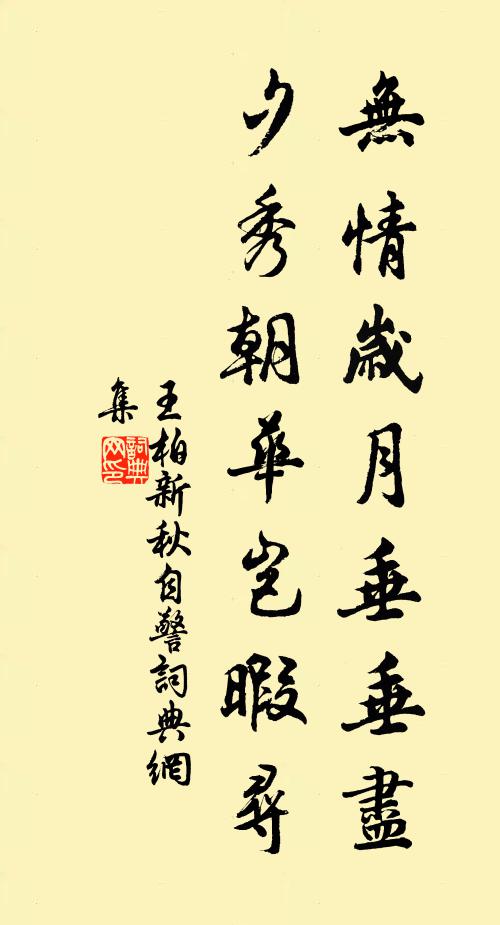 無情歲月垂垂盡
夕秀朝華豈暇尋
王柏新秋自警詞典網
集
詞典網印